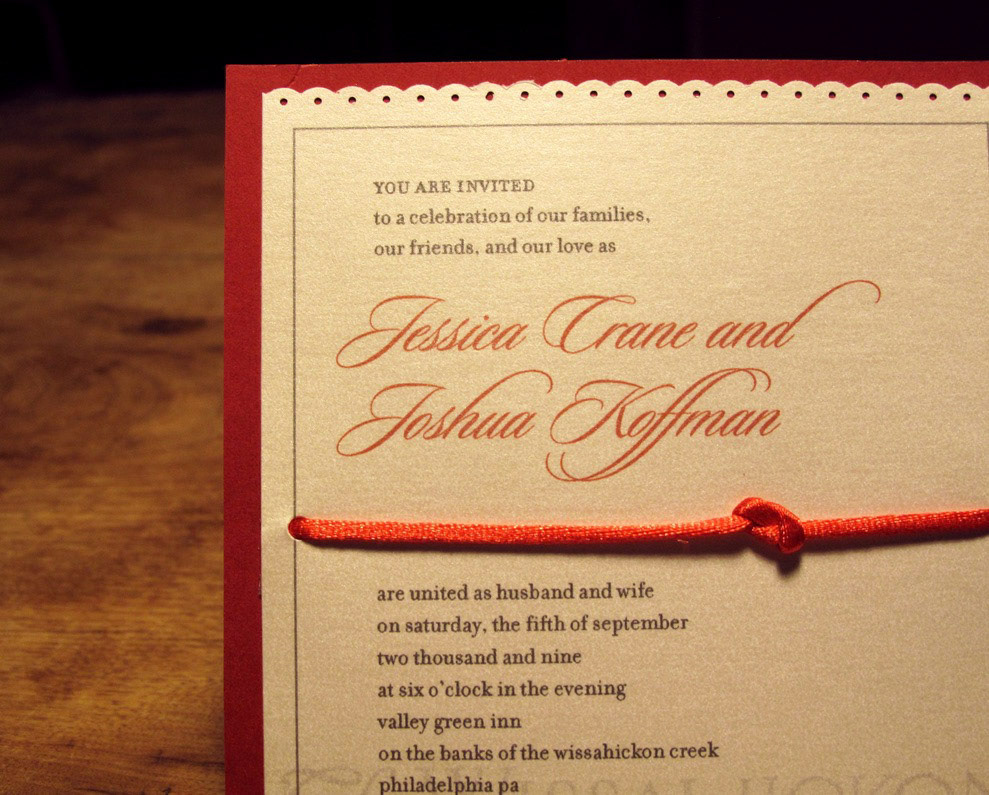 YOU ARE INVITED
to a celebration of our families,
our friends, and our love as
Jessica Crane and
Joshua Koffman
are united as husband and wife
on saturday, the fifth of september
two thousand and nine
at six o'clock in the evening
valley green inn
on the banks of the wissahickon creek
philadelphia pa